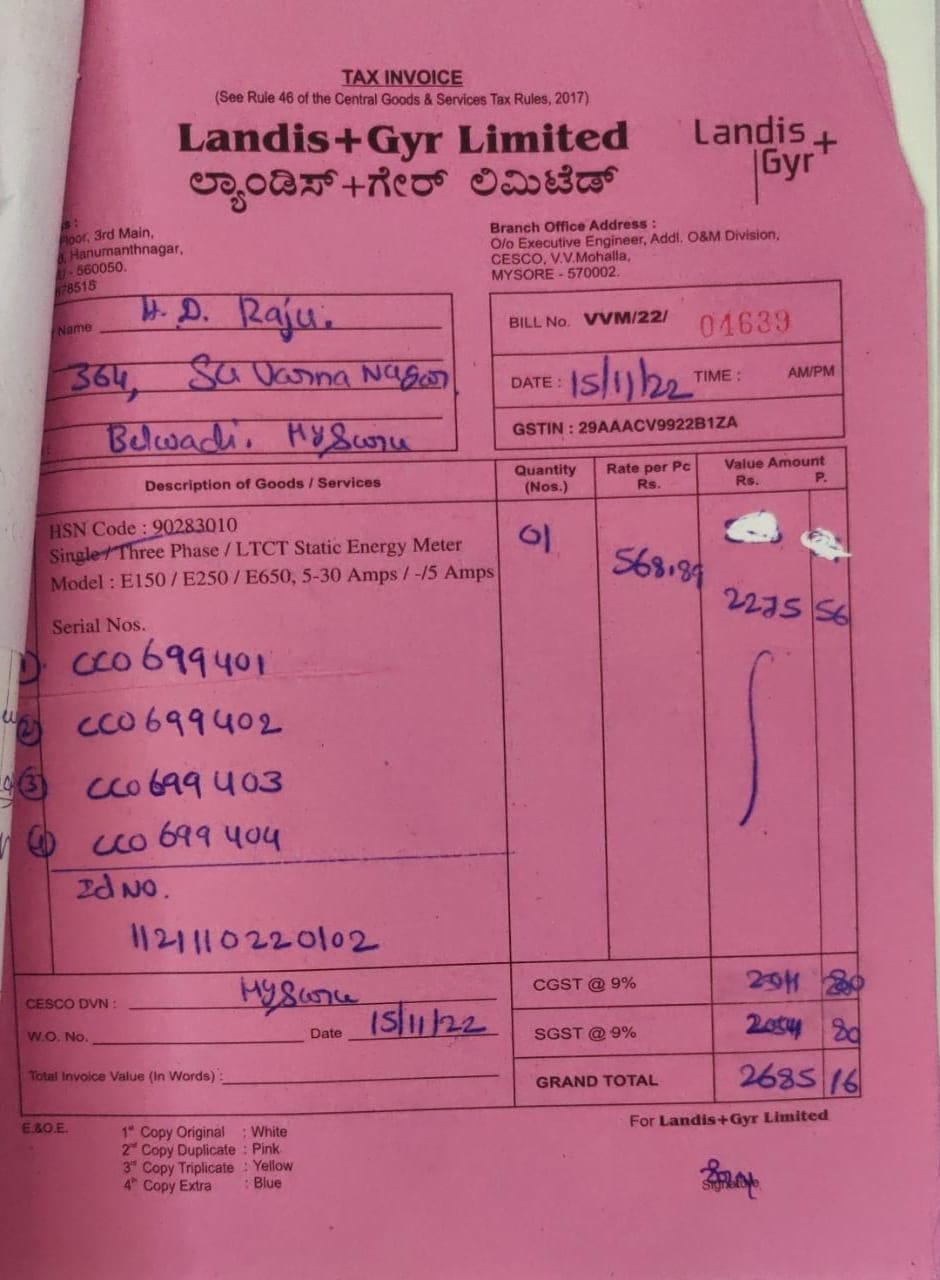 TAX INVOICE
(See Rule 46 of the Central Goods & Services Tax Rules, 2017)
Landis+Gyr Limited
ಲ್ಯಾಂಡಿಸ್+ಗೇರ್ ಲಿಮಿಟೆಡ್
Landis+
Gyr
Floor, 3rd Main,
Hanumanthnagar,
- 560050.
78515
Branch Office Address :
O/o Executive Engineer, Addl. O&M Division,
CESCO, V.V.Mohalla,
MYSORE - 570002.
Name H. D. Raju.
364, Suvarna Nagar
Belwadi. Mysuru
BILL No. VVM/22/ 04639
DATE : 15/11/22 TIME : AM/PM
GSTIN : 29AAACV9922B1ZA
Description of Goods / Services Quantity (Nos.) Rate per Pc Rs. Value Amount Rs. P.
HSN Code : 90283010
Single / Three Phase / LTCT Static Energy Meter 01
Model : E150 / E250 / E650, 5-30 Amps / -/5 Amps 568.89
2275 56
Serial Nos.
1) CC0699401
2) CC0699402
3) CC0699403
4) CC0699404
Id NO.
1121110220102
CESCO DVN : Mysuru
W.O. No. Date 15/11/22
Total Invoice Value (In Words) :
CGST @ 9%
SGST @ 9% 80
GRAND TOTAL 2685 16
E.&O.E.
1st Copy Original : White
2nd Copy Duplicate : Pink
3rd Copy Triplicate : Yellow
4th Copy Extra : Blue
For Landis+Gyr Limited
Signature